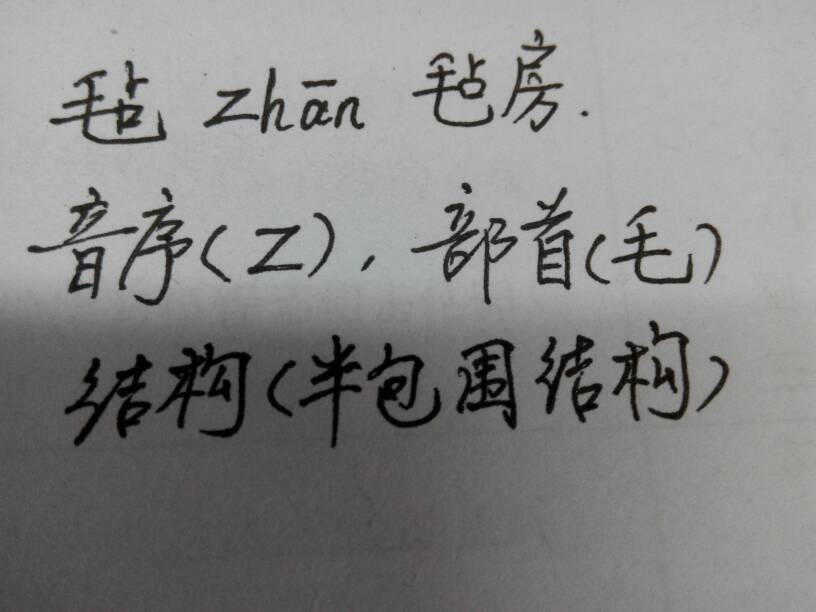 毡 zhān 毡房.
音序(Z),部首(毛)
结构(半包围结构)